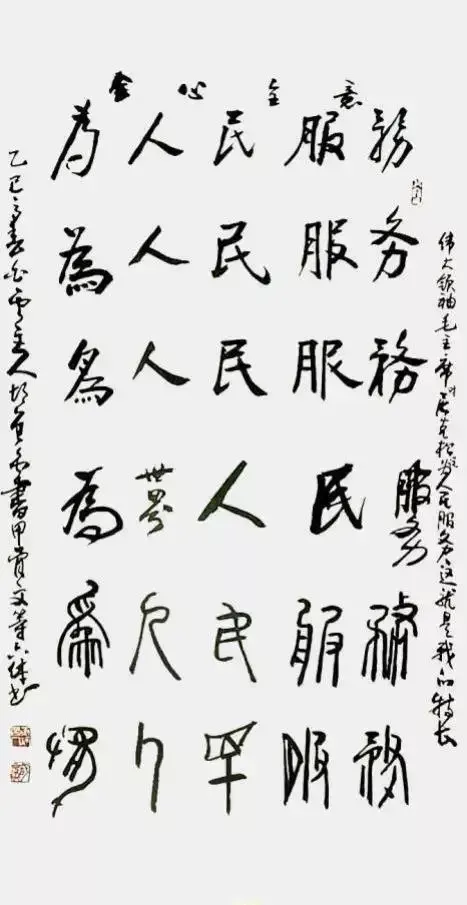 全心全意
為人民服務
為人民服务
為人民服務
為世界人民服务
為人民服務
為人民服務
伟大领袖毛主席为人民服务这就是我的特长
乙巳之春白云主人書甲骨文等六体书